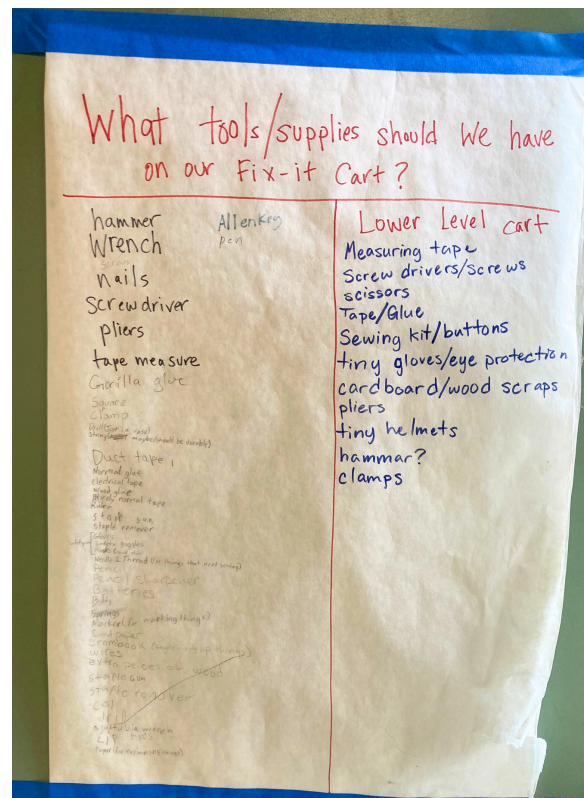 What tools/supplies should We have
on our Fix-it Cart?
hammer
Wrench
nails
Screwdriver
pliers
tape measure
Gorilla glue
Square
Clamp
maybe (should be durable)
Dust tape
Normal glue
electrical tape
wood glue
normal tape
Ruler
staple gun
staple remover
Gloves
goggles
Needle & Thread (for things that need sewing)
Pencil
Pencil sharpener
Batteries
Springs
Marker (for marking things)
Sand paper
wires
extra peices of wood
staple gun
staple remover
drill
wrench
Allen Key
pen
Lower Level cart
Measuring tape
Screw drivers/screws
scissors
Tape/Glue
Sewing kit/buttons
tiny gloves/eye protection
cardboard/wood scraps
pliers
tiny helmets
hammar?
clamps